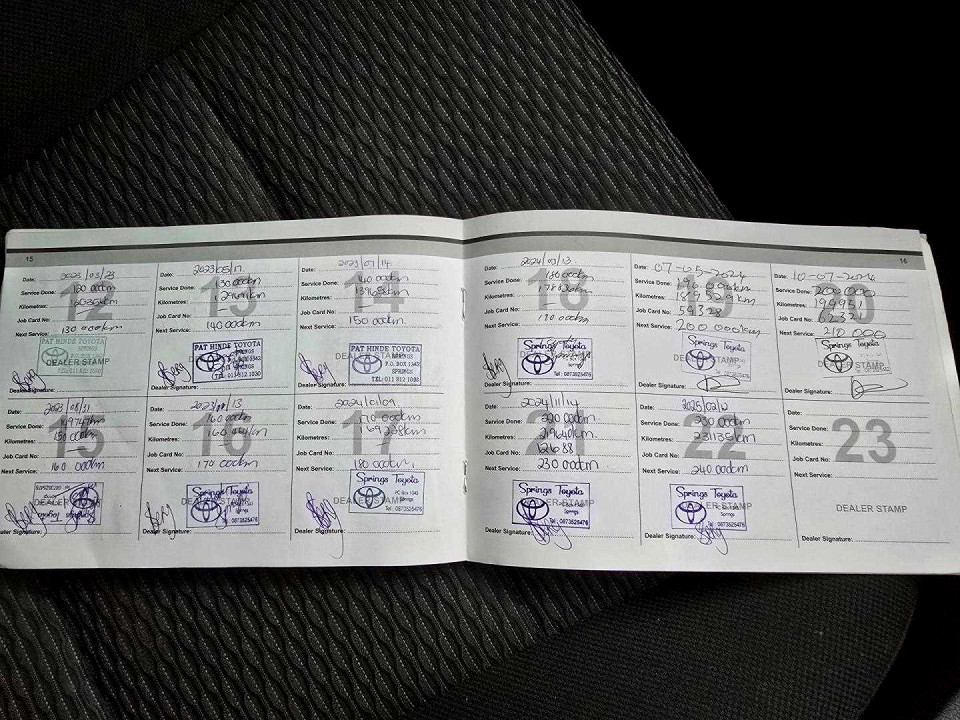 15
12
Date: 2023/03/23
Service Done: 120 000km
Kilometres:
Job Card No:
Next Service: 130 000km
PAT HINDE TOYOTA
SPRINGS
DEALER STAMP
Dealer Signature:
13
Date: 2023/05/17
Service Done: 130 000km
Kilometres:
Job Card No:
Next Service: 140 000km
PAT HINDE TOYOTA
SPRINGS
P.O. BOX 1343
SPRINGS
TEL: 011 812 1030
Dealer Signature:
14
Date: 2023/07/14
Service Done: 140 000km
Kilometres:
Job Card No:
Next Service: 150 000km
PAT HINDE TOYOTA
SPRINGS
P.O. BOX 1343
SPRINGS
TEL: 011 812 1030
Dealer Signature:
15
Date: 2023/08/31
Service Done:
Kilometres: 150 000km
Job Card No:
Next Service: 160 000km
DEALER STAMP
Springs Toyota
Dealer Signature:
16
Date:
Service Done: 160 000km
Kilometres:
Job Card No:
Next Service: 170 000km
Springs Toyota
Springs
Tel: 0873525476
Dealer Signature:
17
Date: 2024/01/09
Service Done: 170 000km
Kilometres: 169238km
Job Card No:
Next Service: 180 000km
Springs Toyota
PO Box 1343
Springs
Tel: 0873525476
DEALER STAMP
Dealer Signature:
16
18
Date: 2024/03/13
Service Done:
Kilometres:
Job Card No:
Next Service: 190 000km
Springs Toyota
Springs
Tel: 0873525476
Dealer Signature:
19
Date: 07-05-2024
Service Done: 190 000km
Kilometres: 189529km
Job Card No: 59328
Next Service: 200 000km
Springs Toyota
DEALER STAMP
Dealer Signature:
20
Date: 10-07-2024
Service Done: 200 000
Kilometres: 199951
Job Card No: 62321
Next Service: 210 000
Springs Toyota
DEALER STAMP
Dealer Signature:
21
Date: 2024/11/14
Service Done: 220 000km
Kilometres: 219640km
Job Card No: 72688
Next Service: 230 000km
Springs Toyota
DEALER STAMP
Springs
Tel: 0873525476
Dealer Signature:
22
Date: 2025/02/12
Service Done: 230 000km
Kilometres: 231135km
Job Card No:
Next Service: 240 000km
Springs Toyota
Springs
Tel: 0873525476
Dealer Signature:
23
Date:
Service Done:
Kilometres:
Job Card No:
Next Service:
DEALER STAMP
Dealer Signature: